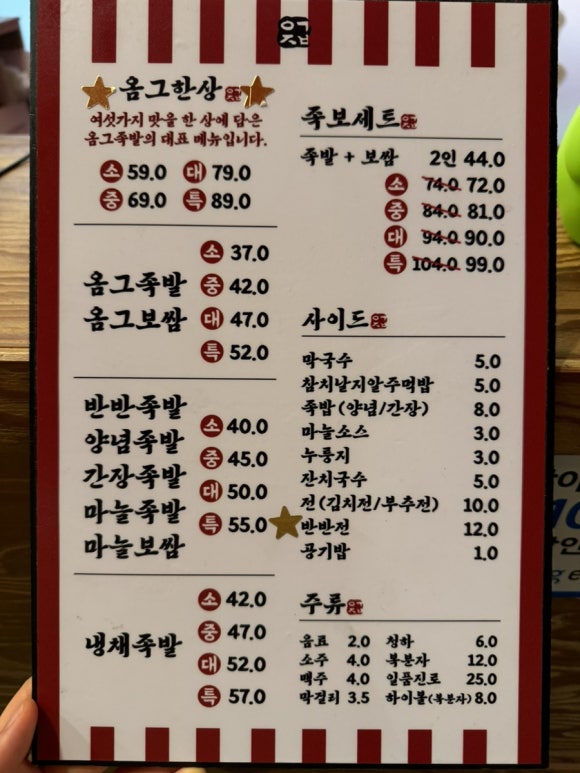 옴그한상
여섯가지 맛을 한 상에 담은
옴그족발의 대표 메뉴입니다.
소 59.0 대 79.0
중 69.0 특 89.0
옴그족발
옴그보쌈
소 37.0
중 42.0
대 47.0
특 52.0
반반족발
양념족발
간장족발
마늘족발
마늘보쌈
소 40.0
중 45.0
대 50.0
특 55.0
냉채족발
소 42.0
중 47.0
대 52.0
특 57.0
족보세트
족발 + 보쌈 2인 44.0
소 74.0 72.0
중 84.0 81.0
대 94.0 90.0
특 104.0 99.0
사이드
막국수 5.0
참치날치알주먹밥 5.0
족밥 (양념/간장) 8.0
마늘소스 3.0
누룽지 3.0
잔치국수 5.0
전(김치전/부추전) 10.0
반반전 12.0
공기밥 1.0
주류
음료 2.0 청하 6.0
소주 4.0 복분자 12.0
맥주 4.0 일품진로 25.0
막걸리 3.5 하이볼(복분자) 8.0